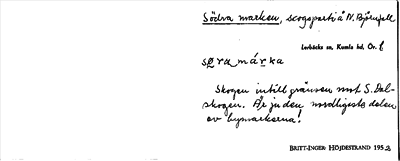 Södra marken, skogsparti å N. Björnfall
Lerbäcks sn, Kumla hd, Ör. l
søra márka
Skogen intill gränsen mot S. Dal-
skogen. Är ju den nordligaste delen
av bymarkerna!
BRITT-INGER HÖJDESTRAND 1952